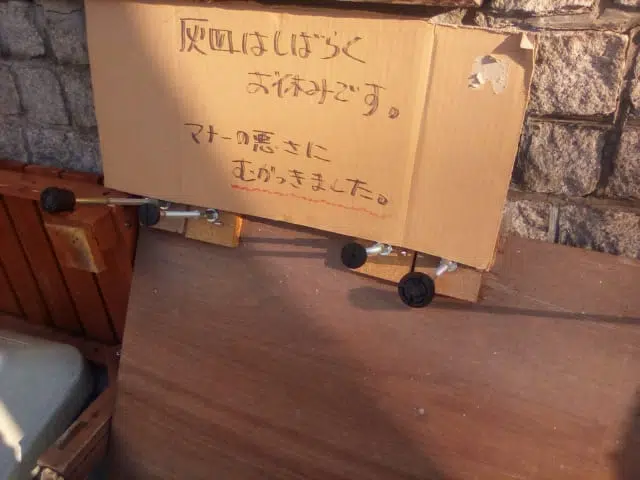 灰皿はしばらく
お休みです。
マナーの悪さに
むかつきました。